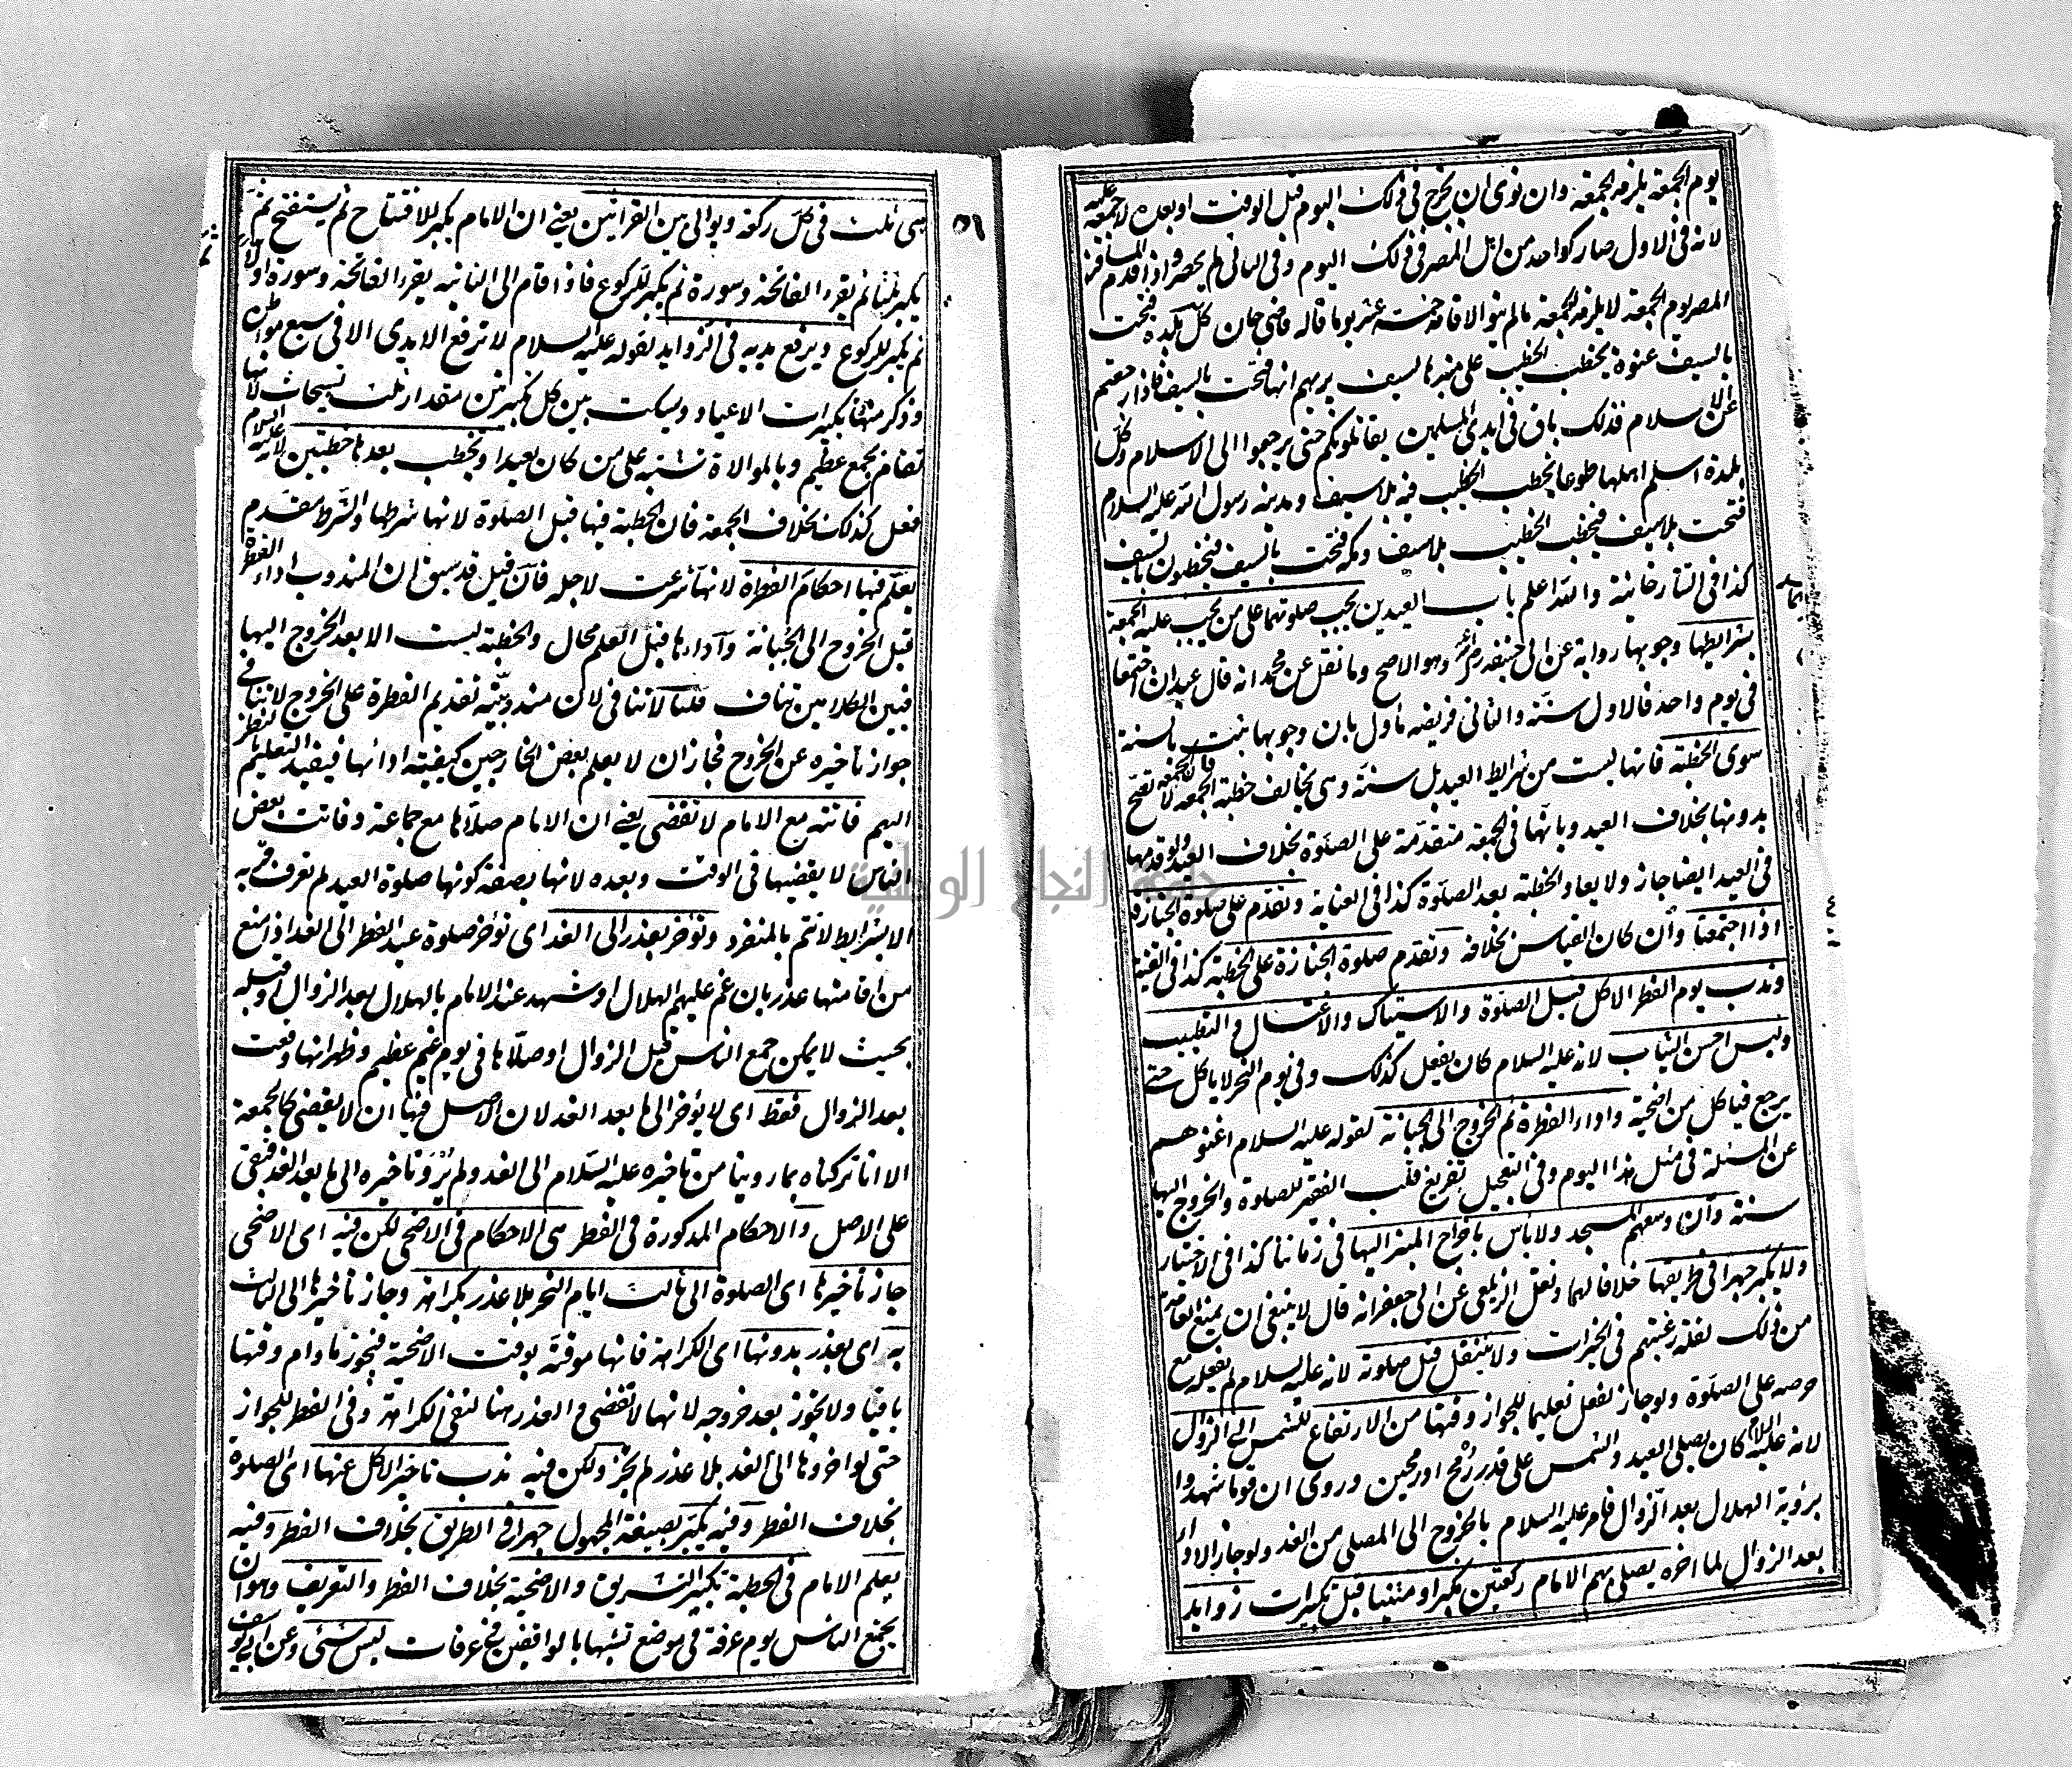 يوم الجمعة يلزمه الجمعة وان نوى ان يخرج في ذلك اليوم قبل الوقت او بعده لا جمعة عليه
لانه في الاول صار كواحد من اهل المصر في ذلك اليوم وفي الثاني لم يصر واذا قدم المسافر
المصر يوم الجمعة لا يلزمه الجمعة ما لم ينو الاقامة خمسة عشر يوما قاله قاضى خان كل بلدة فتحت
بالسيف عنوة يخطب الخطيب على منبرها بالسيف يريهم انها فتحت بالسيف فاذا رجعتم
عن الاسلام فذلك باق في ايدى المسلمين يقاتلونكم حتى يرجعوا الى الاسلام وكل
بلدة اسلم اهلها طوعا يخطب الخطيب فيه بلا سيف ومدينة رسول الله عليه السلام
فتحت بلا سيف فيخطب الخطيب بلا سيف ومكة فتحت بالسيف فيخطبون بالسيف
كذا في التتارخانية والله اعلم باب العيدين يجب صلوتهما على من يجب عليه الجمعة
بشرايطها وجوبها رواية عن ابى حنيفة وهو الاصح وما نقل عن محمد انه قال عيدان اجتمعا
في يوم واحد فالاول سنة والثاني فريضة مأول بان وجوبها ثبت بالسنة
سوى الخطبة فانها ليست من شرايط العيد بل سنة وهى تخالف خطبة الجمعة فان الجمعة لا تصح
بدونها بخلاف العيد وبانها في الجمعة متقدمة على الصلوة بخلاف العيد ولو قدمها
في العيد ايضا جاز ولا يعاد الخطبة بعد الصلوة كذا في العناية وتقدم على صلوة الجنازة
اذا اجتمعتا وان كان القياس بخلافه وتقدم صلوة الجنازة على الخطبة كذا في القنية
وندب يوم الفطر الاكل قبل الصلوة والاستياك والاغتسال والتطييب
ولبس احسن الثياب لانه عليه السلام كان يفعل كذلك وفي يوم النحر لا ياكل حتى
يرجع فياكل من اضحية واداء الفطرة ثم الخروج الى الجبانة لقوله عليه السلام اغنوهم
عن المسئلة في مثل هذا اليوم وفي التعجيل تفريغ قلب الفقير للصلوة والخروج اليها
سنة وان وسعهم المسجد ولا باس باخراج المنبر اليها في زماننا كذا في الاختيار
ولا يكبر جهرا في طريقها خلافا لهما ونقل الزيلعى عن ابى جعفر انه قال لا ينبغى ان يمنع العامة
من ذلك لقلة رغبتهم في الخيرات ولا يتنفل قبل صلوته لانه عليه السلام لم يفعله مع
حرصه على الصلوة ولو جاز لفعل تعليما للجواز وقتها من الارتفاع للشمس الى الزوال
لانه عليه السلام كان يصلى العيد والشمس على قدر رمح او رمحين وروى ان قوما شهدوا
برؤية الهلال بعد الزوال فامر عليه السلام بالخروج الى المصلى من الغد ولو جاز الاداء
بعد الزوال لما اخره يصلى بهم الامام ركعتين مكبرا ومثنيا قبل تكبيرات زوايد
٥٦
هى ثلث في كل ركعة ويوالى بين القرائتين يعنى ان الامام يكبر للافتتاح ثم يستفتح ثم
يكبر ثلثا ثم يقرء الفاتحة وسورة ثم يكبر للركوع فاذا قام الى الثانية يقرء الفاتحة وسورة اولا
ثم يكبر للركوع ويرفع يديه في الزوايد لقوله عليه السلام لا ترفع الايدى الا في سبع مواطن
وذكر منها تكبيرات الاعياد ويسكت بين كل تكبيرتين مقدار ثلث تسبيحات لانها
تقام بجمع عظيم وبالموالاة تشتبه على من كان بعيدا ويخطب بعدها خطبتين لانه عليه السلام
فعل كذلك بخلاف الجمعة فان الخطبة فيها قبل الصلوة لانها شرطها والشرط مقدم
يعلم فيها احكام الفطرة لانها شرعت لاجله فان قيل قد سبق ان المندوب اداء الفطرة
قبل الخروج الى الجبانة واداءها قبل التعلم محال والخطبة ليست الا بعد الخروج اليها
فبين الكلامين تناف قلنا لا تنافى لان مندوبية تقديم الفطرة على الخروج لا تنافى
جواز تأخيره عن الخروج فجاز ان لا يعلم بعض الخارجين كيفية ادائها فيفيد التعليم بالنظر
اليهم فاتته مع الامام لا تقضى يعنى ان الامام صلاها مع جماعة وفاتت بعض
الناس لا يقضيها في الوقت وبعده لانها بصفة كونها صلوة العيد لم تعرف قربة
الا بشرايط لا تتم بالمنفرد وتؤخر بعذر الى الغد اى تؤخر صلوة عيد الفطر الى الغد اذا منع
من اقامتها عذر بان غم عليهم الهلال او شهد عند الامام بالهلال بعد الزوال او قبله
بحيث لا يمكن جمع الناس قبل الزوال او صلاها في يوم غيم عظيم وظهر انها وقعت
بعد الزوال فقط اى لا يؤخر الى ما بعد الغد لان الاصل فيها ان لا يقضى كالجمعة
الا انا تركناه بما روينا من تاخيره عليه السلام الى الغد ولم يرو تاخيره الى ما بعد الغد فبقى
على الاصل والاحكام المذكورة في الفطر هى الاحكام في الاضحى لكن فيه اى الاضحى
جاز تاخيرها اى الصلوة الى ثالث ايام النحر بلا عذر بكراهة وجاز تاخيرها الى الثالث
به اى بعذر بدونها اى الكراهة فانها موقتة بوقت الاضحية فتجوز ما دام وقتها
باقيا ولا تجوز بعد خروجه لانها لا تقضى والعذر هنا لنفى الكراهة وفي الفطر للجواز
حتى لو اخروها الى الغد بلا عذر لم يجز ولكن فيه ندب تاخير الاكل عنها اى الصلوة
بخلاف الفطر وفيه يكبر بصيغة المجهول جهرا في الطريق بخلاف الفطر وفيه
يعلم الامام في الخطبة تكبير التشريق والاضحية بخلاف الفطر والتعريف وهو ان
يجمع الناس يوم عرفة في موضع تشبها بالواقفين في عرفات ليس بشئ وعن ابى يوسف
جامعة النجاح الوطنية